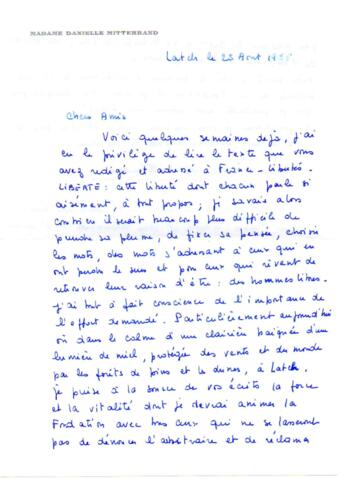 MADAME DANIELLE MITTERRAND
Latche le 23 Août
Chers Amis
Voici quelques semaines déjà, j'ai
eu le privilège de lire le texte que vous
avez rédigé et adressé à France-Libertés.
LIBERTÉ : cette liberté dont chacun parle si
aisément, à tout propos ; je savais alors
combien il serait beaucoup plus difficile de
prendre sa plume, de fixer sa pensée, choisir
les mots, des mots s'adressant à ceux qui en
ont perdu le sens et pour ceux qui rêvent de
retrouver leur raison d'être : des hommes libres.
J'ai tout à fait conscience de l'importance de
l'effort demandé. Particulièrement aujourd'hui
où dans le calme d'une clairière baignée d'une
lumière de miel, protégée des vents et du monde
par les forêts de pins et les dunes, à Latche
je puise à la source de vos écrits la force
et la vitalité dont je devrai animer la
Fondation avec tous ceux qui ne se lasseront
pas de dénoncer l'arbitraire et de réclamer